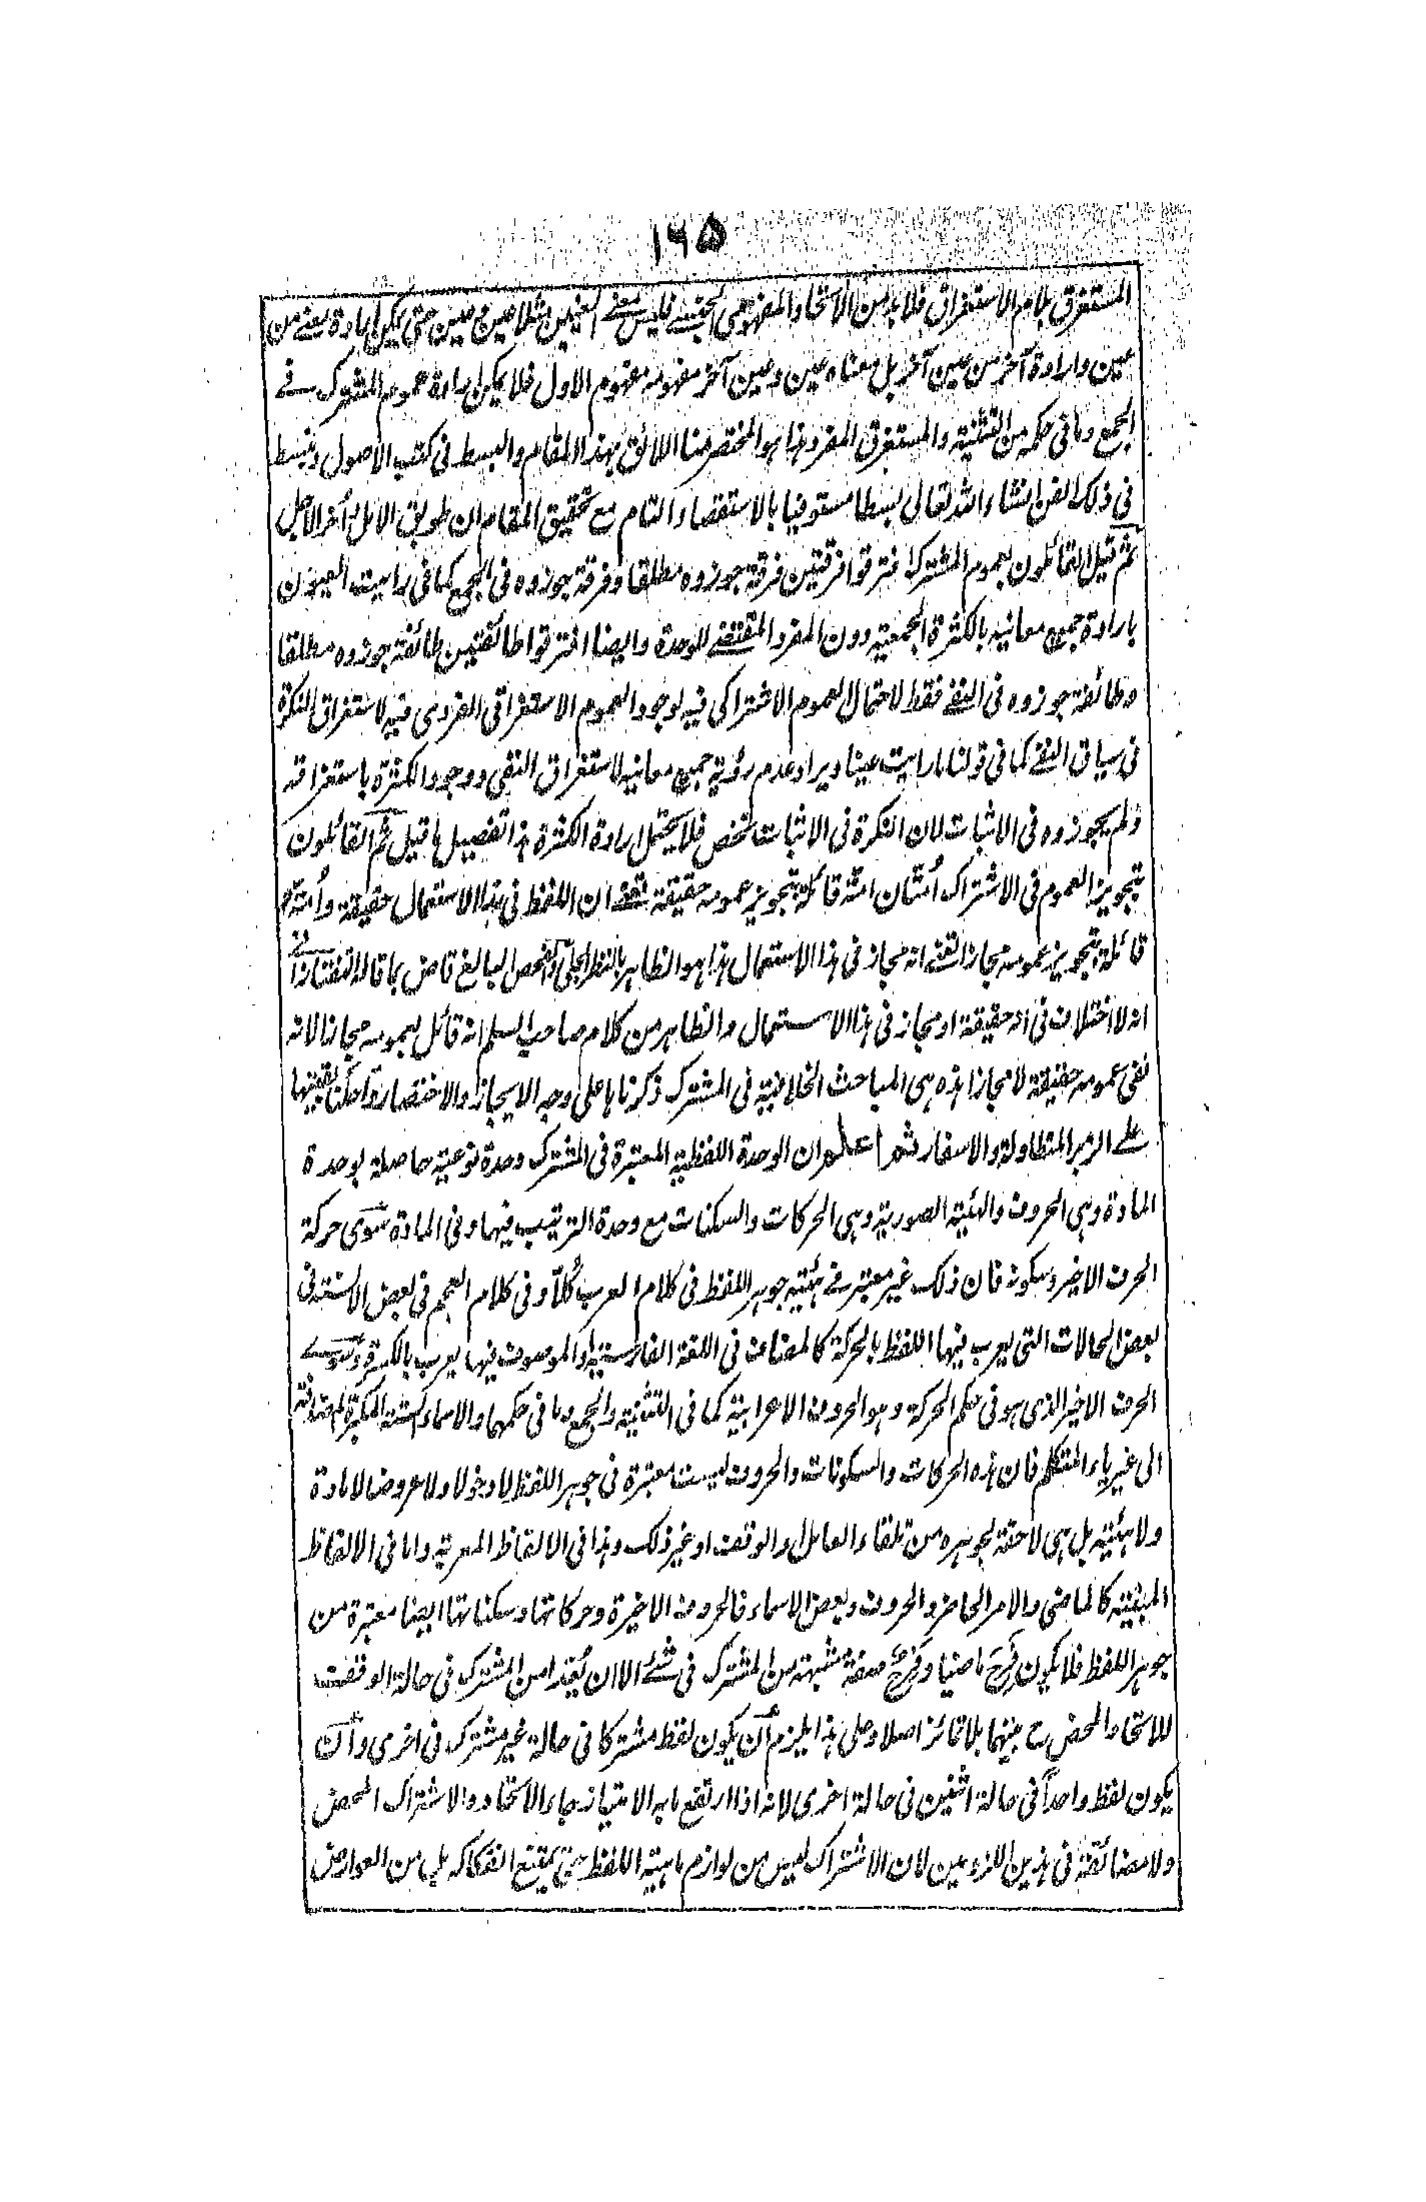 ۱۶۵
المستغرق بلام الاستغراق فلا بد من الاتحاد المفهومی الجنسے فلیس معنے العینین مثلا عین وعین حتی یمکن ارادة معنے من
عین وارادة آخر من عین آخر بل معناه عین وعین آخر مفهومه مفهوم الاول فلا یمکن ارادة عموم المشترک فے
الجمع وما فی حکمه من التثنیة والمستغرق المفرد هذا هو المختصر منا اللائق بهذا المقام والبسط فی کتب الاصول وینبسط
فی ذلک الفن انشاء الله تعالی بسطا مستوفیا بالاستقصاء التام مع تحقیق المقام ان طویق الامل آخر الاجل
ثم قیل القائلون بعموم المشترک افترقوا فرقتین فرقة جوزوه مطلقا وفرقة جوزوه فی الجمع کما فی رایت العیون
بارادة جمیع معانیه بالکثرة الجمعیة دون المفرد المقتضے للوحدة وایضا افترقوا طائفتین طائفة جوزوه مطلقا
وطائفة جوزوه فی النفے فقط لاحتمال العموم الاشتراکی فیه لوجود العموم الاستغراقی الفردی فیه لاستغراق النکرة
فی سیاق النفے کما فی قولنا ما رایت عینا ویراد عدم رؤیة جمیع معانیه لاستغراق النفی ووجود الکثرة باستغراقه
ولم یجوزوه فی الاثبات لان النکرة فی الاثبات تخص فلا یحتمل ارادة الکثرة هذا تفصیل ما قیل ثم القائلون
بتجویز العموم فی الاشتراک اُمتان امة قائلة بتجویز عمومه حقیقة بمعنے ان اللفظ فی هذا الاستعمال حقیقة واُمة
قائلة بتجویز عمومه مجازا بمعنے انه مجاز فی هذا الاستعمال هذا هو الظاهر بالنظر الجلی والفحص البالغ قاض بما قاله التفتازانے
انه لا اختلاف فی انه حقیقة او مجاز فی هذا الاستعمال والظاهر من کلام صاحب السلم انه قائل بعمومه مجازا لانه
نفی عمومه حقیقة لا مجازا هذه هی المباحث الخلافیة فی المشترک ذکرناها علی وجه الایجاز والاختصار واحلنا بقیتها
علے الزبر المتطاولة والاسفار ثم اعلم ان الوحدة اللفظیة المعتبرة فی المشترک وحدة نوعیة حاصلة بوحدة
المادة وهی الحروف والهیئة الصوریة وهی الحرکات والسکنات مع وحدة الترتیب فیها وفی المادة سوی حرکة
الحرف الاخیر وسکونه فان ذلک غیر معتبر فے هیئیة جوهر اللفظ فی کلام العرب کُلاً وفی کلام العجم فی بعض الالسنة فی
بعض الحالات التی یعرب فیها اللفظ بالحرکة کالمضاف فی اللغة الفارسیة والموصوف فیها یعرب بالکسرة وسوے
الحرف الاخیر الذی هو فی حکم الحرکة وهو الحروف الاعرابیة کما فی التثنیة والجمع وما فی حکمهما والاسماء الستة المکبرة المضافة
الی غیر یاء المتکلم فان هذه الحرکات والسکونات والحروف لیست معتبرة فی جوهر اللفظ لا دخولا ولا عروضا لا مادة
ولا هیئیة بل هی لاحقة لجوهره من تلقاء العامل والوقف او غیر ذلک وهذا فی الالفاظ المعربة واما فی الالفاظ
المبنیة کالماضی والامر الحاضر والحروف وبعض الاسماء فالحروف الاخیرة وحرکاتها وسکناتها ایضا معتبرة من
جوهر اللفظ فلا یکون فَرِحَ ماضیا وفَرِحٌ صفة مشبهة من المشترک فی شئے الا ان یُعَدا من المشترک فی حالة الوقف
للاتحاد المحض ح بینهما بلا تمائز اصلا وعلی هذا یلزم أن یکون لفظ مشترکا فی حالة غیر مشترک فی اخری وأن
یکون لفظ واحداً فی حالة اثنین فی حالة اخری لانه اذا ارتفع ما به الامتیاز جاء الاتحاد والاشتراک المحض
ولا مضائقة فی هذین اللزومین لان الاشتراک لیس من لوازم ماهیة اللفظ حتی یمتنع انفکاکه بل من العوارض